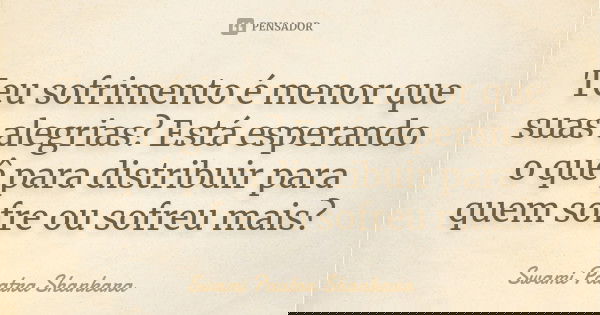 PENSADOR
Teu sofrimento é menor que
suas alegrias? Está esperando
o quê para distribuir para
quem sofre ou sofreu mais?
Swami Paatra Shankara